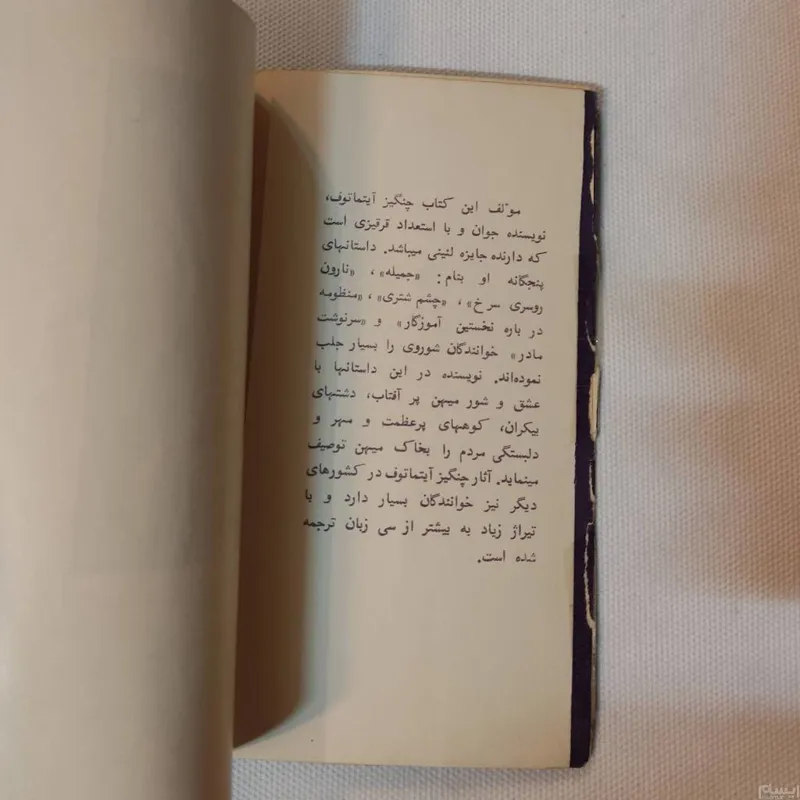 موٴلف این کتاب چنگیز آیتماتوف،
نویسنده جوان و با استعداد قرقیزی است
که دارنده جایزه لنینی میباشد. داستانهای
پنجگانه او بنام: «جمیله»، «نارون
روسری سرخ»، «چشم شتری»، «منظومه
در باره نخستین آموزگار» و «سرنوشت
مادر» خوانندگان شوروی را بسیار جلب
نموده‌اند. نویسنده در این داستانها با
عشق و شور میهن پر آفتاب، دشتهای
بیکران، کوههای پرعظمت و مهر و
دلبستگی مردم را بخاک میهن توصیف
مینماید. آثار چنگیز آیتماتوف در کشورهای
دیگر نیز خوانندگان بسیار دارد و با
تیراژ زیاد به بیشتر از سی زبان ترجمه
شده است.
ایسام